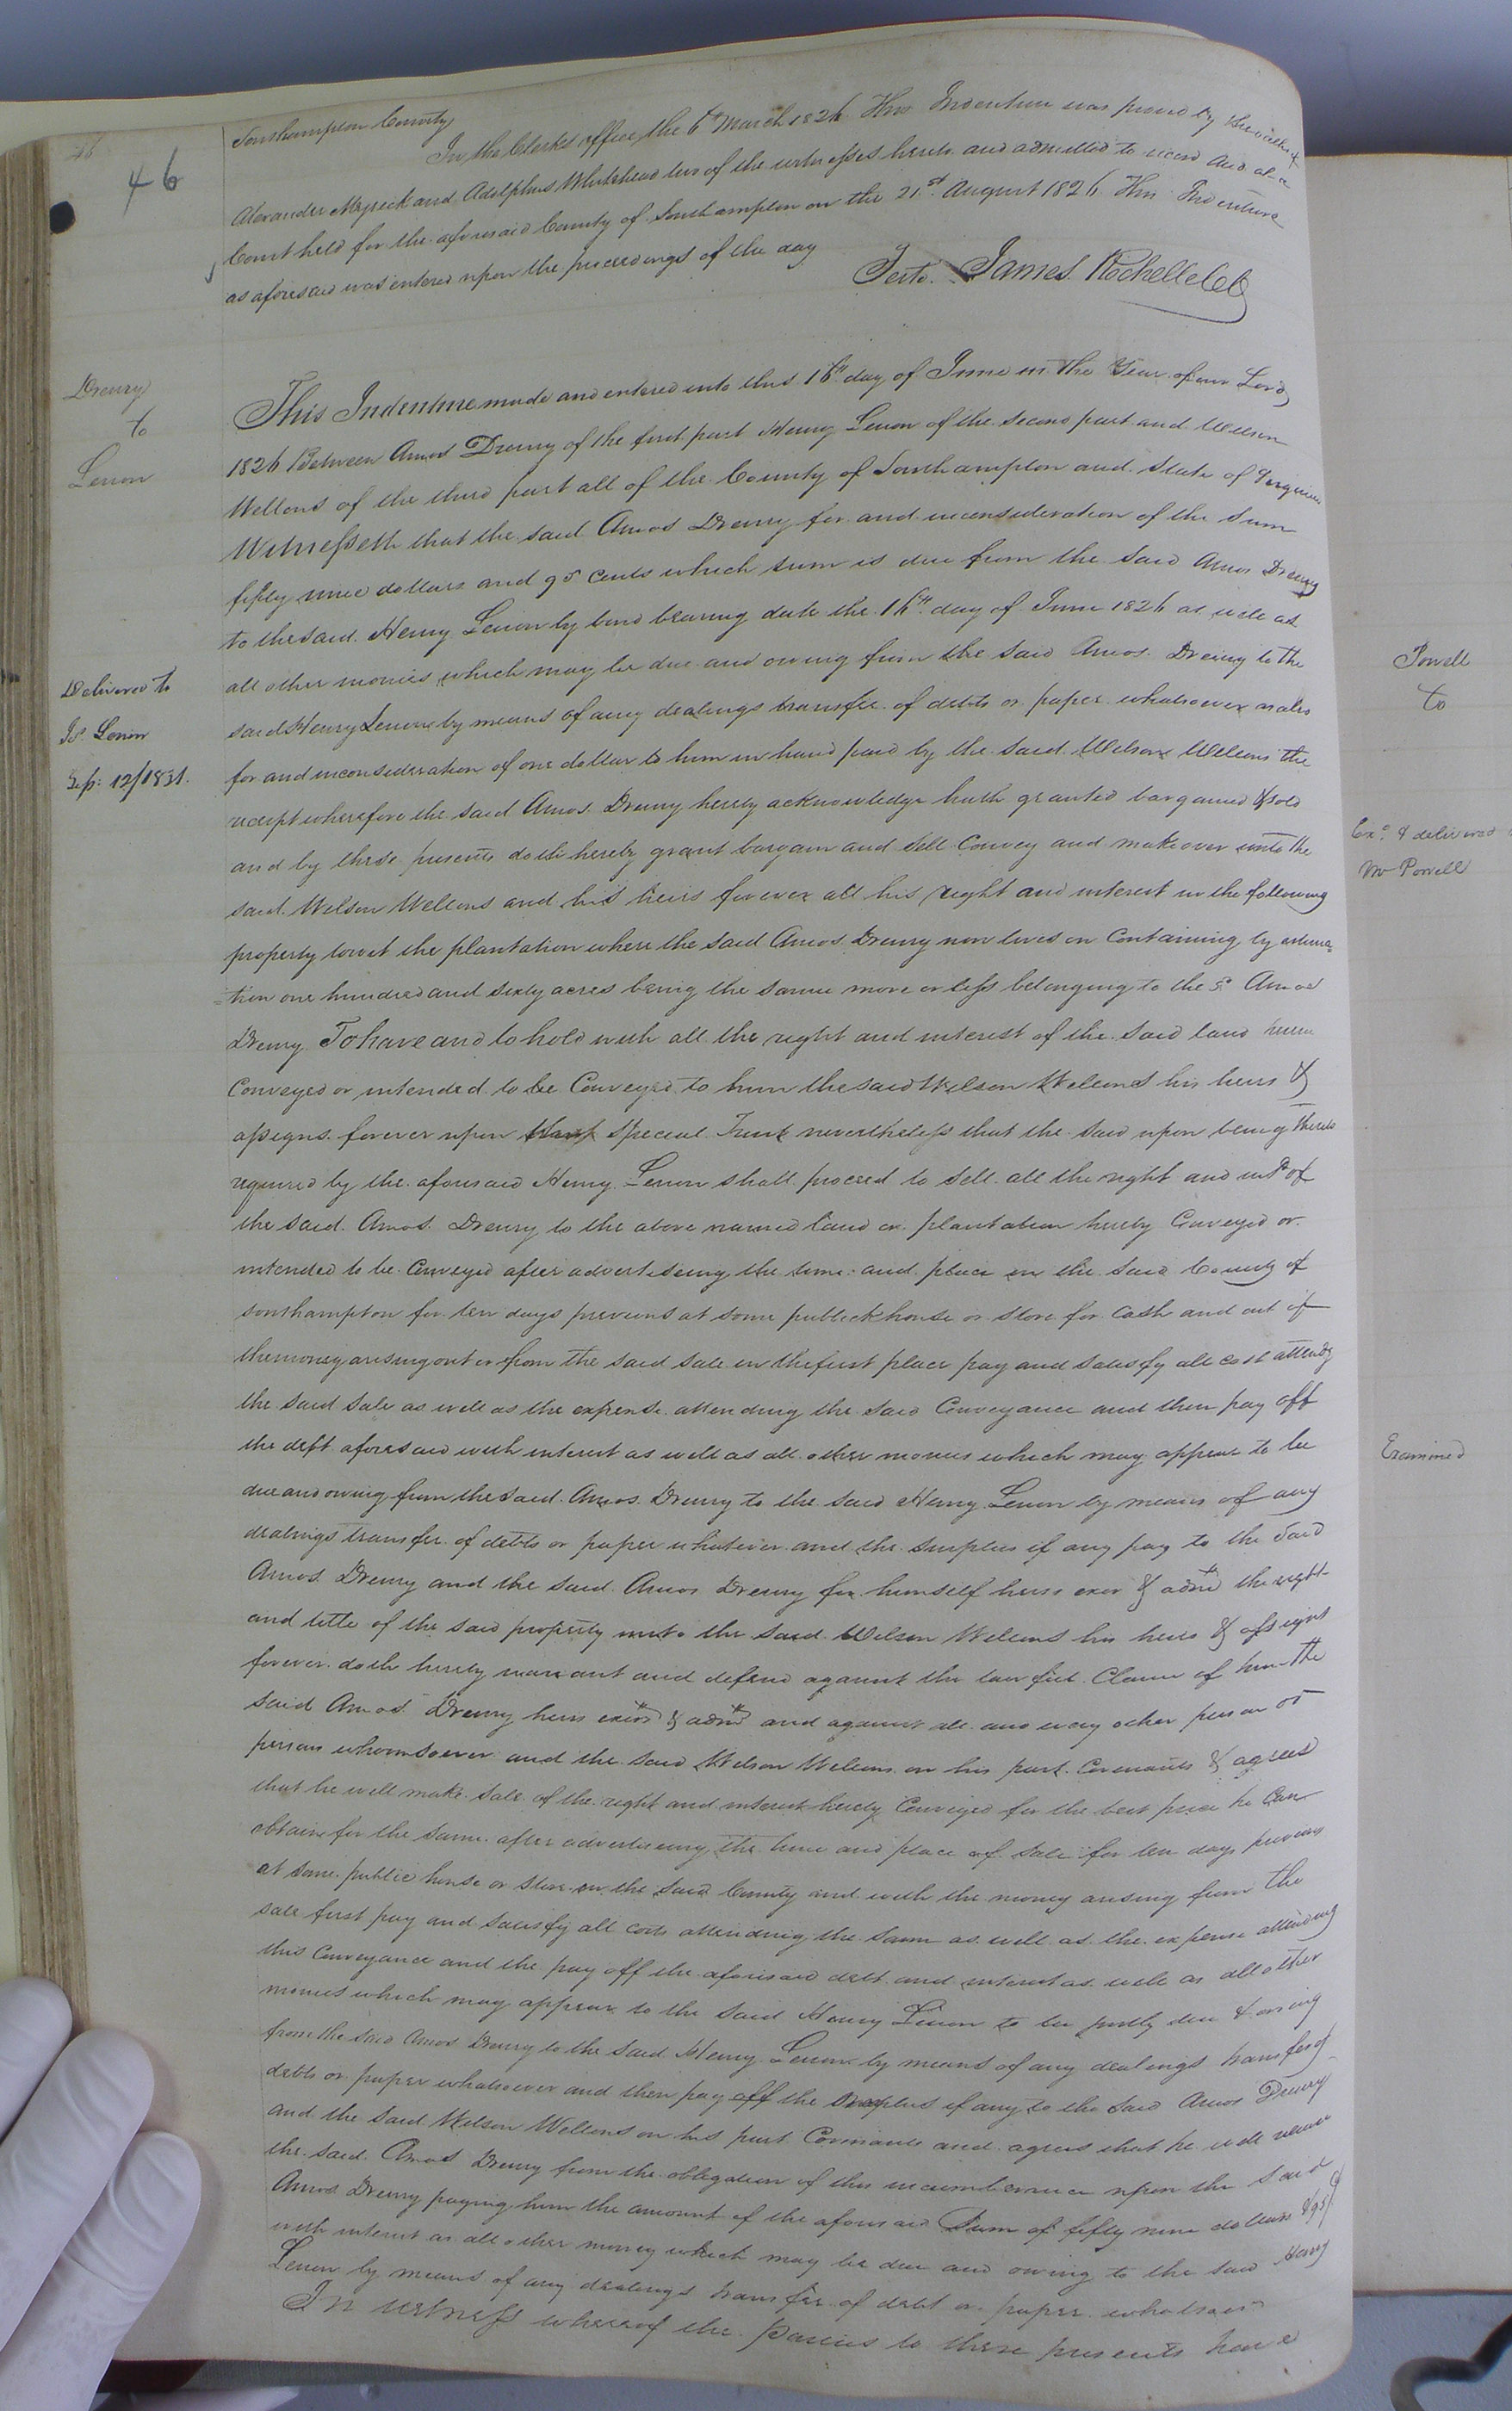 46
Southampton County
In the Clerks office the 6th March 1826 This Indenture was proved by the oaths of
Alexander Myrick and Adolphus Whitehead two of the witnesses hereto and admitted to record And at a
Court held for the aforesaid County of Southampton on the 21.st August 1826 This Indenture
as aforesaid was entered upon the proceedings of the day
Teste. James Rochelle Clk
Drewry
to
Lenon
This Indenture made and entered into this 16th day of June in the Year of our Lord
1826 Between Amos Drewry of the first part Henry Lenon of the second part and Wilson
Wellons of the third part all of the County of Southampton and State of Virginia
Witnesseth that the said Amos Drewry for and inconsideration of the Sum
fifty nine dollars and 95 Cents which sum is due from the said Amos Drewry
to the said Henry Lenon by bond bearing date the 16th day of June 1826 as well as
all other monies which may be due and owing from the said Amos Drewry to the
Delivered to
Js. Lenon
Sep: 12/1831.
said Henry Lenon by means of any dealings transfer of debts or paper whatsoever as also
for and inconsideration of one dollar to him in hand paid by the said Wilson Wellons the
receipt wherefore the said Amos Drewry hereby acknowledge hath granted bargained & sold
and by these presents doth hereby grant bargain and Sell Convey and make over unto the
said Wilson Wellons and his heirs forever all his right and interest in the following
property towit the plantation where the said Amos Drewry now lives on Containing by estima=
=tion one hundred and sixty acres being the same more or less belonging to the sd Amos
Drewry To have and to hold with all the right and interest of the said land herein
Conveyed or intended to be Conveyed to him the said Wilson Wellons his heirs &
assigns forever upon special Trust nevertheless that the said upon being thereto
required by the aforesaid Henry Lenon shall proceed to sell all the right and intst of
the said Amos Drewry to the above named land or plantation hereby Conveyed or
intended to be Conveyed after advertiseing the time and place in the said County of
southampton for ten days previous at some publick house or store for Cash and out of
the money arising out or from the said sale in the first place pay and satisfy all cost attendg
the said sale as well as the expense attending the said Conveyance and then pay off
the debt aforesaid with interest as well as all other monies which may appear to be
due and owing from the said Amos Drewry to the said Henry Lenon by means of any
dealings transfer of debts or paper whatever and the surplus if any pay to the said
Amos Drewry and the said Amos Drewry for himself heirs exor & admr the right
and title of the said property unto the said Wilson Wellons his heirs & assigns
forever doth hereby warrant and defend against the lawfull Claim of him the
said Amos Drewry heirs exors & admrs and against all and every other person or
persons whomsoever and the said Wilson Wellons on his part Covenants & agrees
that he will make sale of the right and interest hereby Conveyed for the best price he Can
obtain for the same after advertiseing the time and place of sale for ten days previous
at some public house or store in the said County and with the money arising from the
sale first pay and satisfy all costs attending the same as well as the expense attending
this Conveyance and the pay off the aforesaid debt and interest as well as all other
monies which may appear to the said Henry Lenon to be justly due & owing
from the said Amos Drewry to the said Henry Lenon by means of any dealings transfer of
debts or paper whatsoever and then pay off the surplus if any to the said Amos Drewry
and the said Wilson Wellons on his part Covenants and agrees that he will
the said Amos Drewry from the obligation of this incumberance upon the said
Amos Drewry paying him the amount of the aforesaid Sum of fifty nine dollars & 95 C
with interest as all other money which may be due and owing to the said Henry
Lenon by means of any dealings transfer of debt or paper whatsoever
In witness whereof the parties to these presents have
Powell
to
Exd & delivered
Mr Powell
Examined